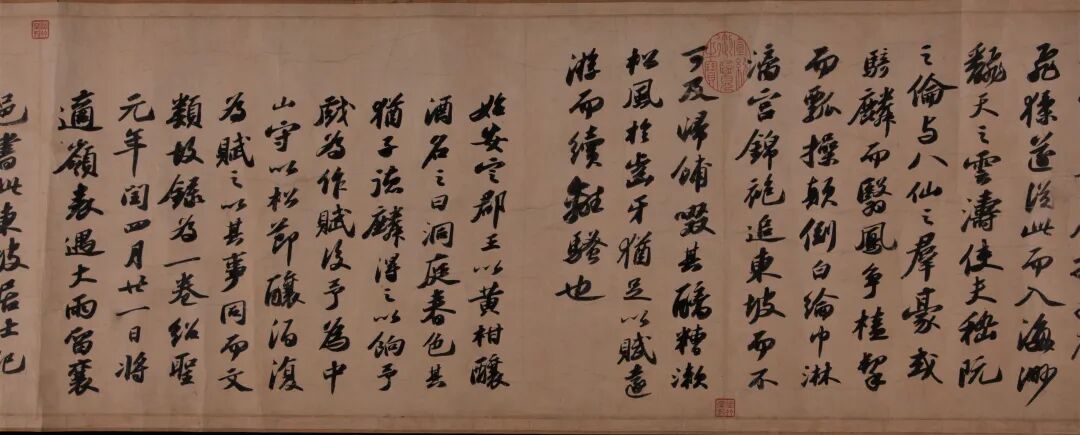 飛猱遂從此而入海渺
翻天之雲濤使夫嵇阮
之倫与八仙之羣豪或
騎麟而翳鳳爭榼挈
而瓢操顛倒白綸巾淋
漓宮錦袍追東坡而不
可及歸餔歠其醨糟漱
松風於齒牙猶足以賦遠
游而續離騷也
始安定郡王以黃柑釀
酒名之曰洞庭春色其
猶子德麟得之以餉予
戲為作賦後予為中
山守以松節釀酒復
為賦之以其事同而文
類故錄為一卷紹聖
元年閏四月廿一日將
適嶺表遇大雨留襄
邑書此東坡居士記